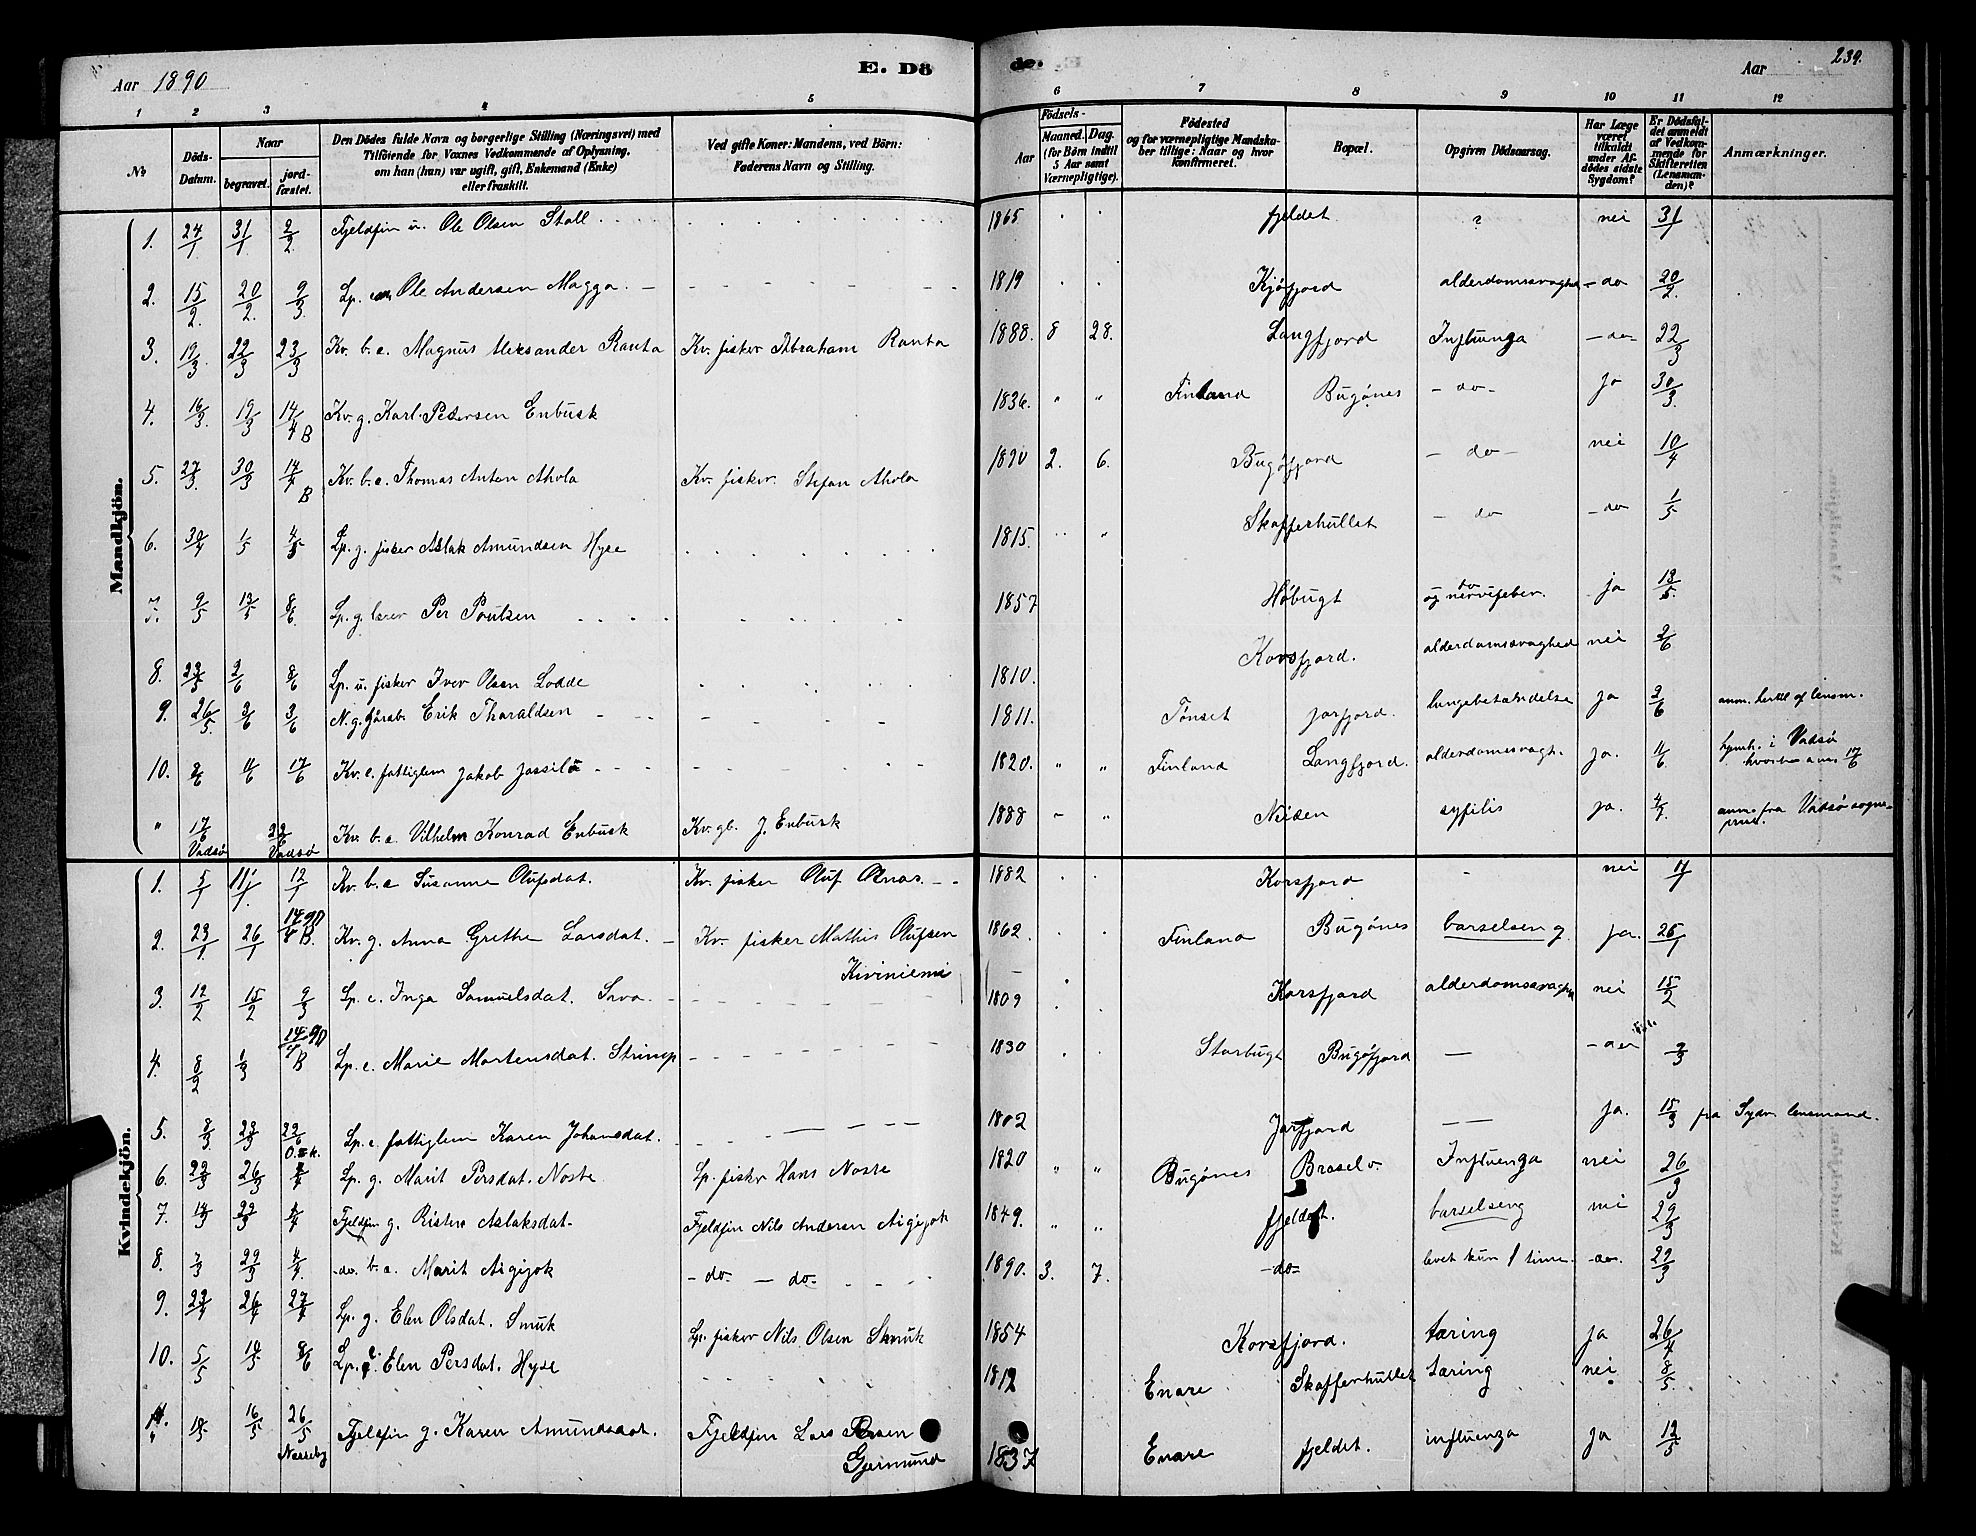 Aar 1890
E. Dö
de.
Aar
239.
1 2 3 4 5 6 7 8 9 10 11 12
No
Döds-Datum.
Naar
begravet.
jordfæstet.
Den Dödes fulde Navn og borgerlige Stilling (Næringsvei) med
Tilföiende for Voxnes Vedkommende af Oplysning,
om han (hun) var ugift, gift, Enkemand (Enke)
eller fraskilt.
Ved gifte Koner: Mandens, ved Börn:
Faderens Navn og Stilling.
Födsels-
Aar
Maaned. Dag.
(for Börn indtil
5 Aar samt
Værnepligtige).
Födested
og for værnepligtige Mandska-
ber tillige: Naar og hvor
Konfirmeret.
Bopæl.
Opgiven Dödsaarsag.
Har Læge
været
tilkaldt
under Af-
dödes sidste
Sygdom?
Er Dödsfal-
det anmeldt
af Vedkom-
mende for
Skifteretten
(Lensman-
den)?
Anmærkninger.
Mandkjön.
1. 24/1 31/1 2/2 Fjeldfin u. Ole Olsen Stall 1865 fjeldet ? nei 31/1
2. 15/2. 20/2. 9/3. Lp. Ole Andersen Magga. 1819 Kjøfjord alderdomssvaghed – do 20/2.
3. 19/3. 22/3 23/3 Kv. b. e. Magnus Aleksander Ranta Kv. fisker Abraham Ranta 1888. 8 28. Langfjord Influenza – do – 22/3
4. 16/3. 19/3 14/4 B Kv. g. Karl Pedersen Enbusk 1836. " " Finland Bugönes – do – ja 30/3.
5. 27/3. 30/3 14/4 B Kv. b. e. Thomas Anton Ahola Kv. fisker Stefan Ahola 1890 2. 6. Bugöfjord – do – nei 10/4
6. 30/4 1/5 4/5 Lp. g. fisker Aslak Amundsen Hyse 1815. " Skafferhullet – do – do 1/5
7. 9/5 13/5 8/6 Lp. g. lærer Per Poulsen 1857 Høbugt do og nervefeber. ja 13/5.
8. 23/5 2/6 8/6 Lp. u. fisker Iver Olsen Lodde 1810. Korsfjord. alderdomssvaghed nei 2/6
9. 26/5. 3/6 3/6 N. g. Erik Tharaldsen 1811. Tönset Jarfjord. lungebetændelse ja 3/6
10. 8/6 11/6 17/6 Kv. e. fattiglem Jakob Jossila 1820. " " Finland Langfjord. alderdomssvagh. ja. 11/6. i Vadsø 17/6
" 17/6 Vadsø 22/6 Vadsø Kv. b. e. Vilhelm Konrad Enbusk Kv. gb. J. Enbusk 1888 " Neiden syfilis ja. 4/7. anm. fra Vadsø sogne-
Kvindekjön.
1. 5/1 11/1. 12/1 Kv. b. e Susanne Olufsdat. Kv. fisker Oluf Olnas. 1882 Korsfjord nei 11/1
2. 23/1 26/1 14/4 90 B. Kv. g. Anna Grethe Larsdat. Kv. fisker Mathis Olufsen Kiviniemi 1862. Finland Bugönes barselseng ja. 26/1
3. 12/2 15/2 9/3 Lp. e. Inga Samuelsdat. 1809 Korsfjord alderdomssvaghed nei 15/2
4. 8/2 1/3 14/4 90 B Lp. e. Marie Mortensdat. Strimp 1830 Storbugt Bugöfjord – – do 2/3
5. 8/3 23/3 22/6 Lp. e. fattiglem Karen Johansdat. 1802 Jarfjord – ja. 15/3 fra Sydv. lensmand.
6. 22/3 26/3 Lp. g. Marit Persdat. Noste Lp. fisker Hans Noste 1820 " " Bugönes Influenza nei 26/3
7. 14/3 22/3 Fjeldfin g. Risten Aslaksdat. Fjeldfin Nils Andersen Aigijok 1849. " " fjeldet. barselseng nei 29/3
8. 7/3 22/3 4/4. – do. b. e. Marit Aigijok – do – do – 1890. 3. 7. – do – levet kun 1 time. – do. 22/3
9. 23/4 26/4 27/4 Lp. g. Elen Olsdat. Smuk Lp. fisker Nils Olsen Smuk 1854 Korsfjord. tæring ja 26/4
10. 5/5 8/6 Lp. e Elen Persdat. Hyse 1812 Enare Skafferhullet tæring nei 8/5.
11. 16/5 26/5 Næsseby Fjeldfin g. Karen Amundsdat. Fjeldfin Lars Persen Gjermund 1837 Enare fjeldet. influenza ja 12/5